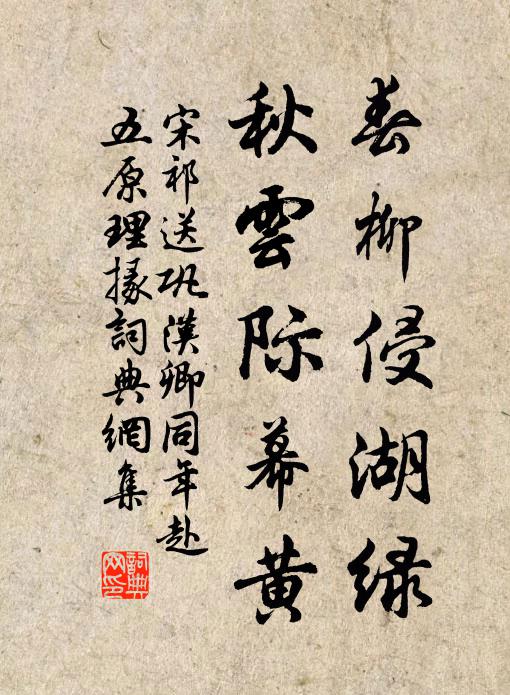 春柳侵湖绿
秋雲际幕黄
宋祁送巩漢卿同年赴
五原理掾詞典網集
詞典网印